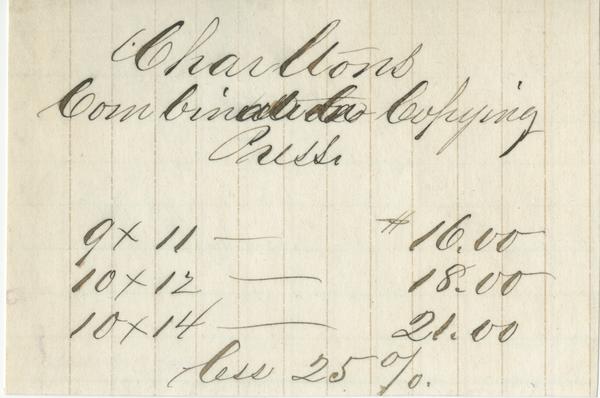 Charltons
Combination Copying
Press.
9 x 11 — $16.00
10 x 12 — 18.00
10 x 14 — 21.00
less 25 %.